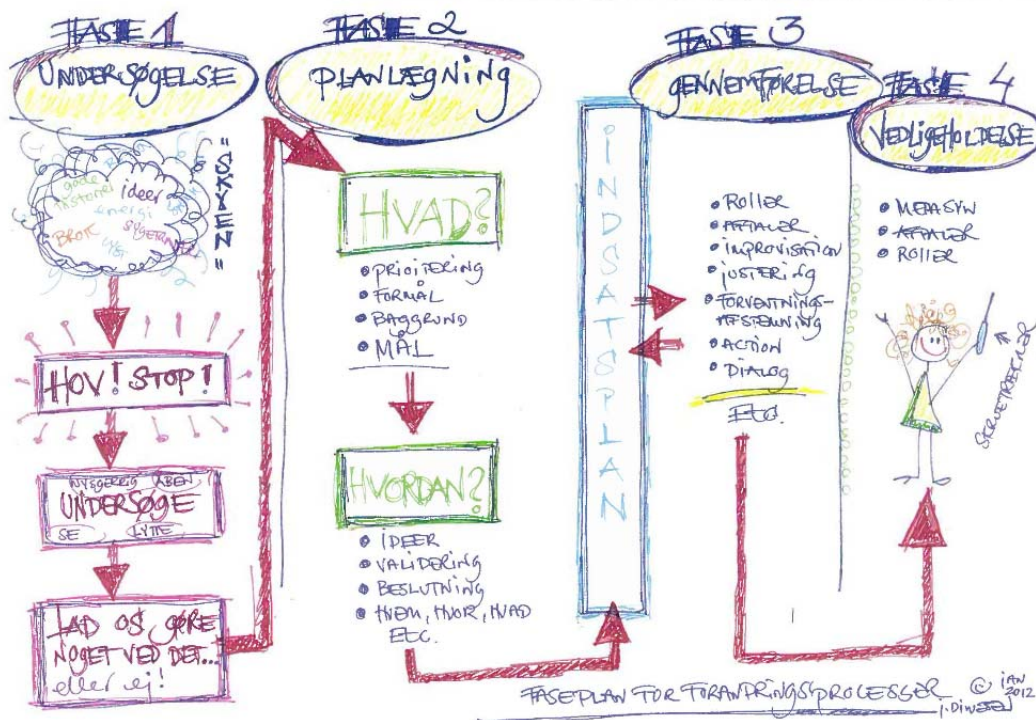 FASE 1
UNDERSØGELSE
"SKYEN"
gode
historier
ideer
energi
BROK
HOV! STOP!
NYSGERRIG ÅBEN
UNDERSØGE
SE LYTTE
LAD OS GØRE
NOGET VED DET...
eller ej!
FASE 2
PLANLÆGNING
HVAD?
PRIOITERING
FORMÅL
BAGGRUND
MÅL
HVORDAN?
IDEER
VALIDERING
BESLUTNING
HVEM, HVOR, HVAD
ETC.
INDSATSPLAN
FASE 3
GENNEMFØRELSE
ROLLER
AFTALER
IMPROVISATION
JUSTERING
FORVENTNINGS-
AFSTEMNING
ACTION
DIALOG
ETC.
FASE 4
VEDLIGEHOLDELSE
METASYN
AFTALER
ROLLER
SKRUETRÆKKER
FASEPLAN FOR FORANDRINGSPROCESSER
© JAN
2012